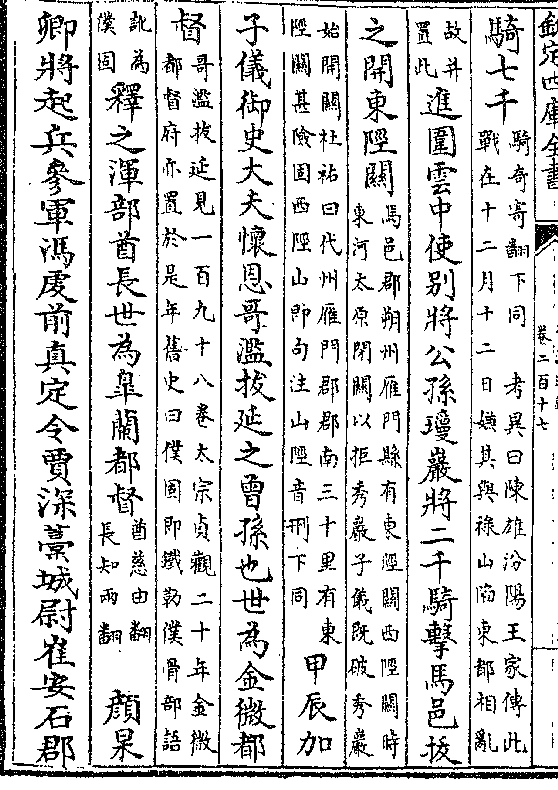 欽定四庫全書
卷二百十七
騎七千
騎奇寄翻下同　考異曰陳雄汾陽王家傳此
戰在十二月十二日嫌其與祿山陷東都相亂
故并
置此
進圍雲中使別將公孫瓊巖將二千騎擊馬邑拔
之開東陘關
馬邑郡朔州雁門縣有東陘關西陘關時
東河太原閉關以拒秀巖子儀既破秀巖
始開關杜祐曰代州雁門郡郡南三十里有東
陘關甚險固西陘山即句注山陘音刑下同
甲辰加
子儀御史大夫懷恩哥濫拔延之曾孫也世為金微都
督
哥濫拔延見一百九十八卷太宗貞觀二十年金微
都督府亦置於是年舊史曰僕固即鐵勒僕骨部語
訛為
僕固
釋之渾部酋長世為臯蘭都督
酋慈由翻
長知兩翻
顏杲
卿將起兵參軍馮虔前真定令賈深藁城尉崔安石郡